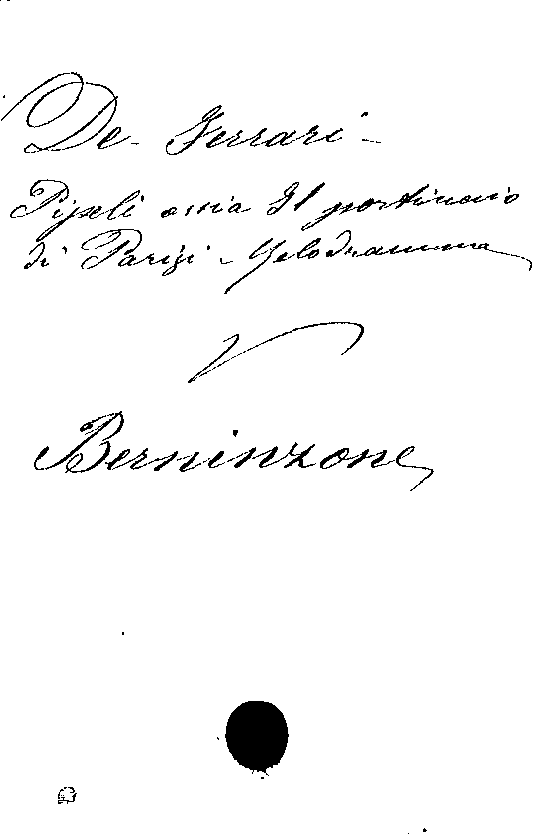 De-Ferrari-
Pipeli ossia Il portinaio
di Parigi - Melodramma
V
Berninzone